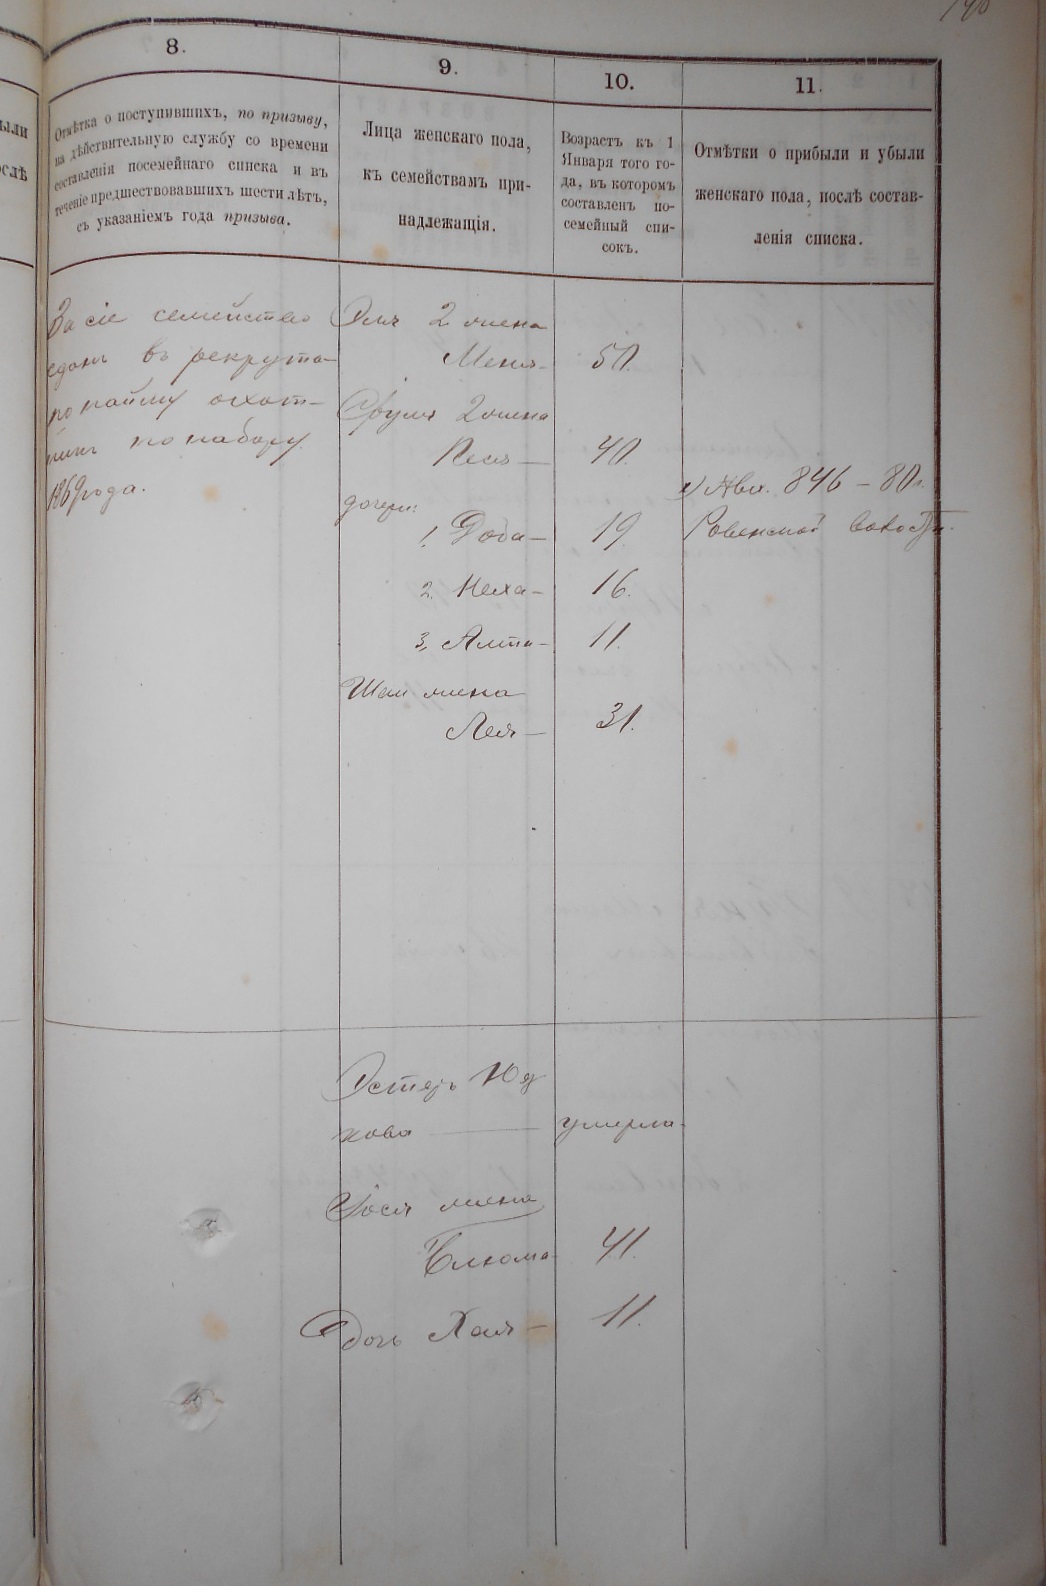 ыли
слѣ
8.
Отмѣтка о поступившихъ, по призыву,
на дѣйствительную службу со времени
составленія посемейнаго списка и въ
теченіе предшествовавшихъ шести лѣтъ,
съ указаніемъ года призыва.
9.
Лица женскаго пола,
къ семействамъ при-
надлежащія.
10.
Возрастъ къ 1
Января того го-
да, въ которомъ
составленъ по-
семейный спи-
сокъ.
11.
Отмѣтки о прибыли и убыли
женскаго пола, послѣ состав-
ленія списка.
За сіе семейство
сданъ въ рекрута
по найму охот-
никъ по набору
1869 года.
2 жена
50.
Сруля 2 жена
Песя — 40.
дочери:
1. Доба — 19
2. Неха — 16.
3, Алта — 11.
жена
Лея — 31.
846 — 80
Ровенской волости.
Эстеръ Юд
кова — умерла
Іося жена
Блюма 41.
дочь Хая — 11.